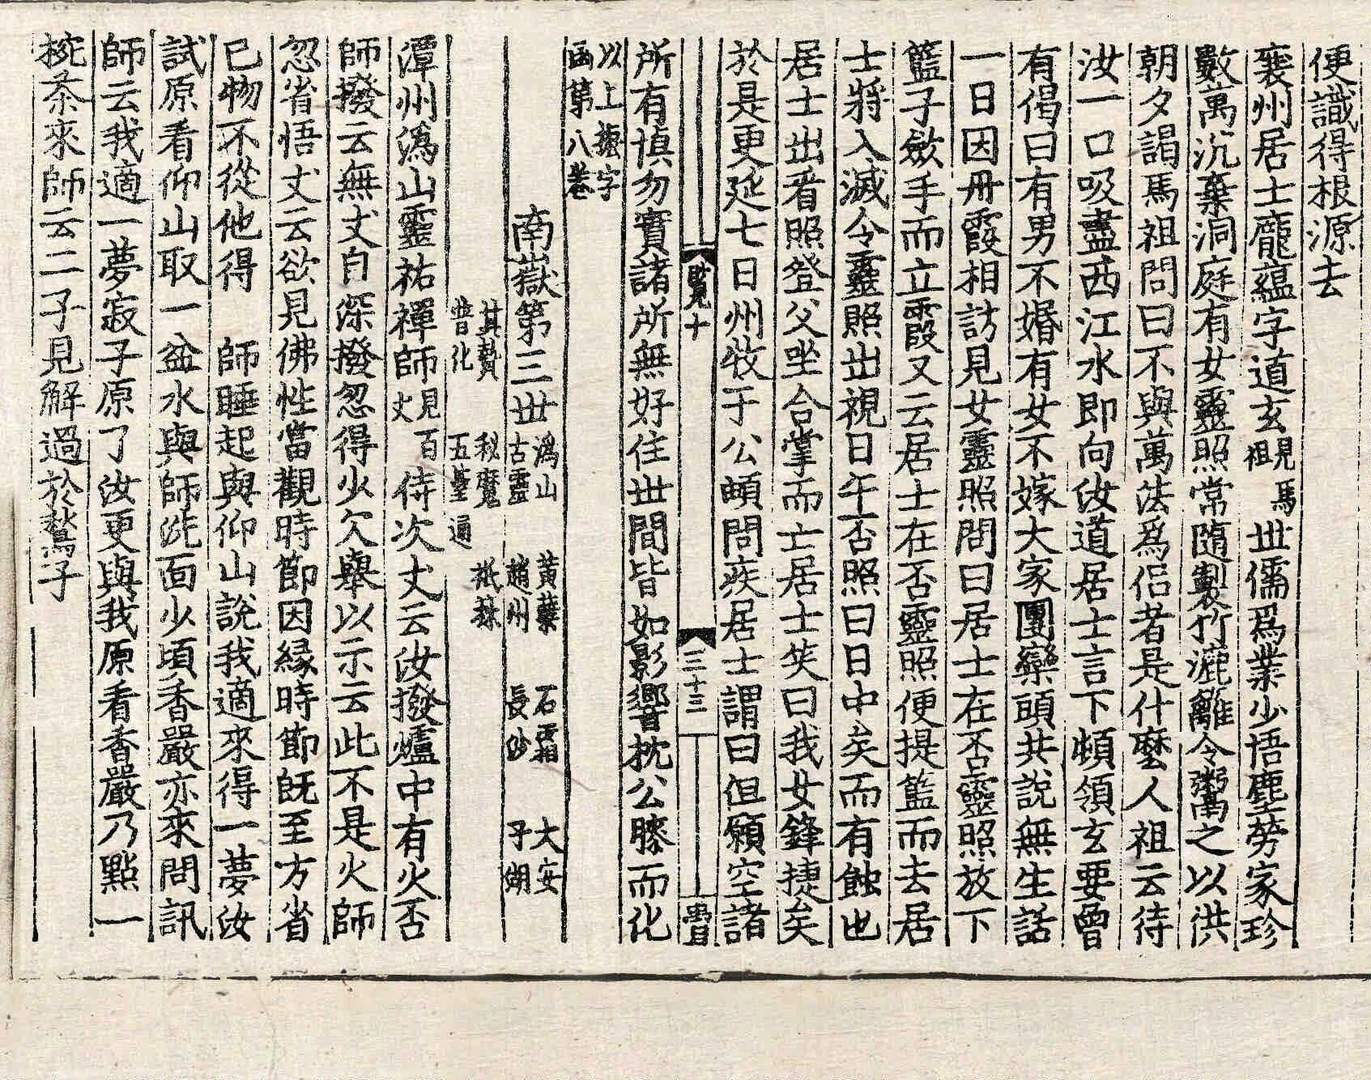 便識得根源去
襄州居士龐蘊字道玄見馬祖世儒爲業少悟塵勞家珍
數萬沉棄洞庭有女靈照常隨製竹漉籬令鬻之以供
朝夕謁馬祖問曰不與萬法爲侶者是什麼人祖云待
汝一口吸盡西江水即向汝道居士言下頓領玄要曾
有偈曰有男不婚有女不嫁大家團欒頭共說無生話
一日因丹霞相訪見女靈照問曰居士在否靈照放下
籃子斂手而立霞又云居士在否靈照便提籃而去居
士將入滅令靈照出視日午否照曰日中矣而有蝕也
居士出看照登父坐合掌而亡居士笑曰我女鋒捷矣
於是更延七日州牧于公頔問疾居士謂曰但願空諸
覽十 三十三
所有愼勿實諸所無好住世間皆如影響枕公膝而化
以上振字
函第八卷
南嶽第三世 潙山 古靈 黃蘗 趙州 石霜 長沙 大安 子湖
其贊 普化 秘魔 五臺通 祇林
潭州潙山靈祐禪師見百丈侍次丈云汝撥爐中有火否
師撥云無丈自深撥忽得少火舉以示云此不是火師
忽省悟丈云欲見佛性當觀時節因緣時節旣至方省
已物不從他得 師睡起與仰山說我適來得一夢汝
試原看仰山取一盆水與師洗面少頃香嚴亦來問訊
師云我適一夢寂子原了汝更與我原看香嚴乃點一
椀茶來師云二子見解過於鶖子